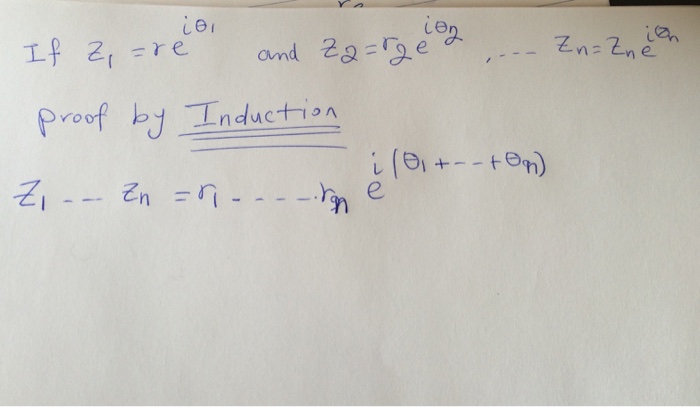 If z₁ = re^{iθ₁} and z₂ = r₂e^{iθ₂}, ---- zₙ = zₙe^{iθₙ}
proof by Induction
z₁ --- zₙ = r₁ - - - - . rₙ e^{i(θ₁ + -- + θₙ)}